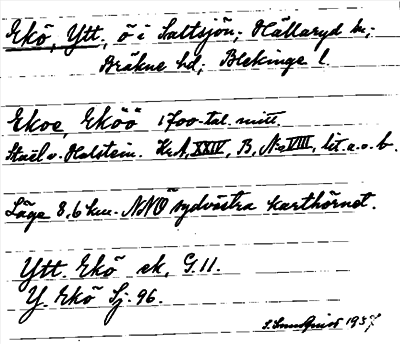 Ekö, Ytt, ö i Saltsjön; Hällaryd sn;
Bräkne hd; Blekinge l.
Ekoe, Eköö 1700-tal. mitt.
Staël v. Holstein. KrA, XXIV, B, No VIII, lit. a. o. b.
Läge 8,6 km. NNO sydvästra karthörnet.
Ytt. Ekö ek, G.11.
Y. Ekö Sj. 96.
1937